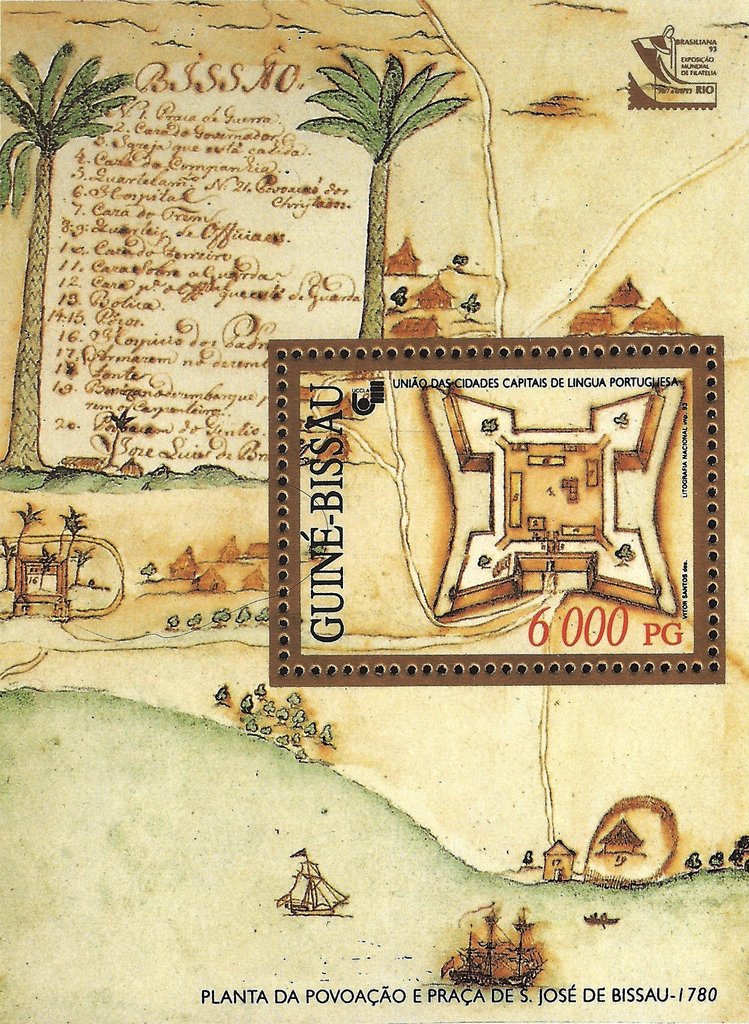 BISSAO.
N. 1. Praca de Guerra.
2. Caza do Governador.
3. Igreja que está cahida.
4. Caza da Companhia
5. Quartelam.to N. 21. Povoacaõ dos
Christaõn.
6. Hospital
7. Caza do Trem
8.9. Quarteis de Officiaes.
10. Caza do Terreiro
11. Caza sobre a Guarda
12. Caza p.a o Offal que está de Guarda
13. Botica.
14.15. Poços.
16. Hospicio dos Padr
17. Armazem no dezemb
18. Fonte
19.
rem o Carpenteiro.
20. do Gentio.
Joze Luis de Br
BRASILIANA
93
EXPOSIÇÃO
MUNDIAL
DE FILATELIA
RIO
UCCLA
UNIÃO DAS CIDADES CAPITAIS DE LINGUA PORTUGUESA
GUINÉ-BISSAU
LITOGRAFIA NACIONAL imp. 93
VITOR SANTOS des.
6 000 PG
16
17
19
PLANTA DA POVOAÇÃO E PRAÇA DE S. JOSÉ DE BISSAU-1780